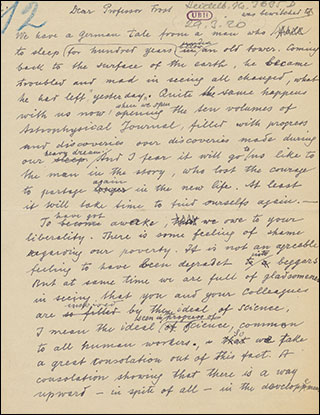 12
Dear Professor Frost
Heidelb. Hs. 3695 E
UBH
29.3.20
was bewitched
We have a German tale from a man who fell
to sleep (for hundred years) under an old tower. Coming
back to the surface of the earth, he became
troubled and mad in seeing all changed, what
he had left "yesterday". Quite the same happens
with us now when we open the ten volumes of
Astrophysical Journal, filled with progress
and discoveries over discoveries made during
our heavy dream. And I fear it will go to us like to
the man in the story, who lost the courage
to partage again in the new life. At least
it will take time to find ourselves again. —
To have got awake, we owe to your
liberality. There is some feeling of shame
regarding our poverty. It is not an agreable
feeling to have been degradet into beggars
But at same time we are full of gladsomeness
in seeing that you and your colleagues
are inspired by the ideal of science.
I mean the ideal been a progress of science, common
to all human workers, so we take
a great consolation out of this fact. A
consolation showing that there is a way
upward — in spite of all — in the development